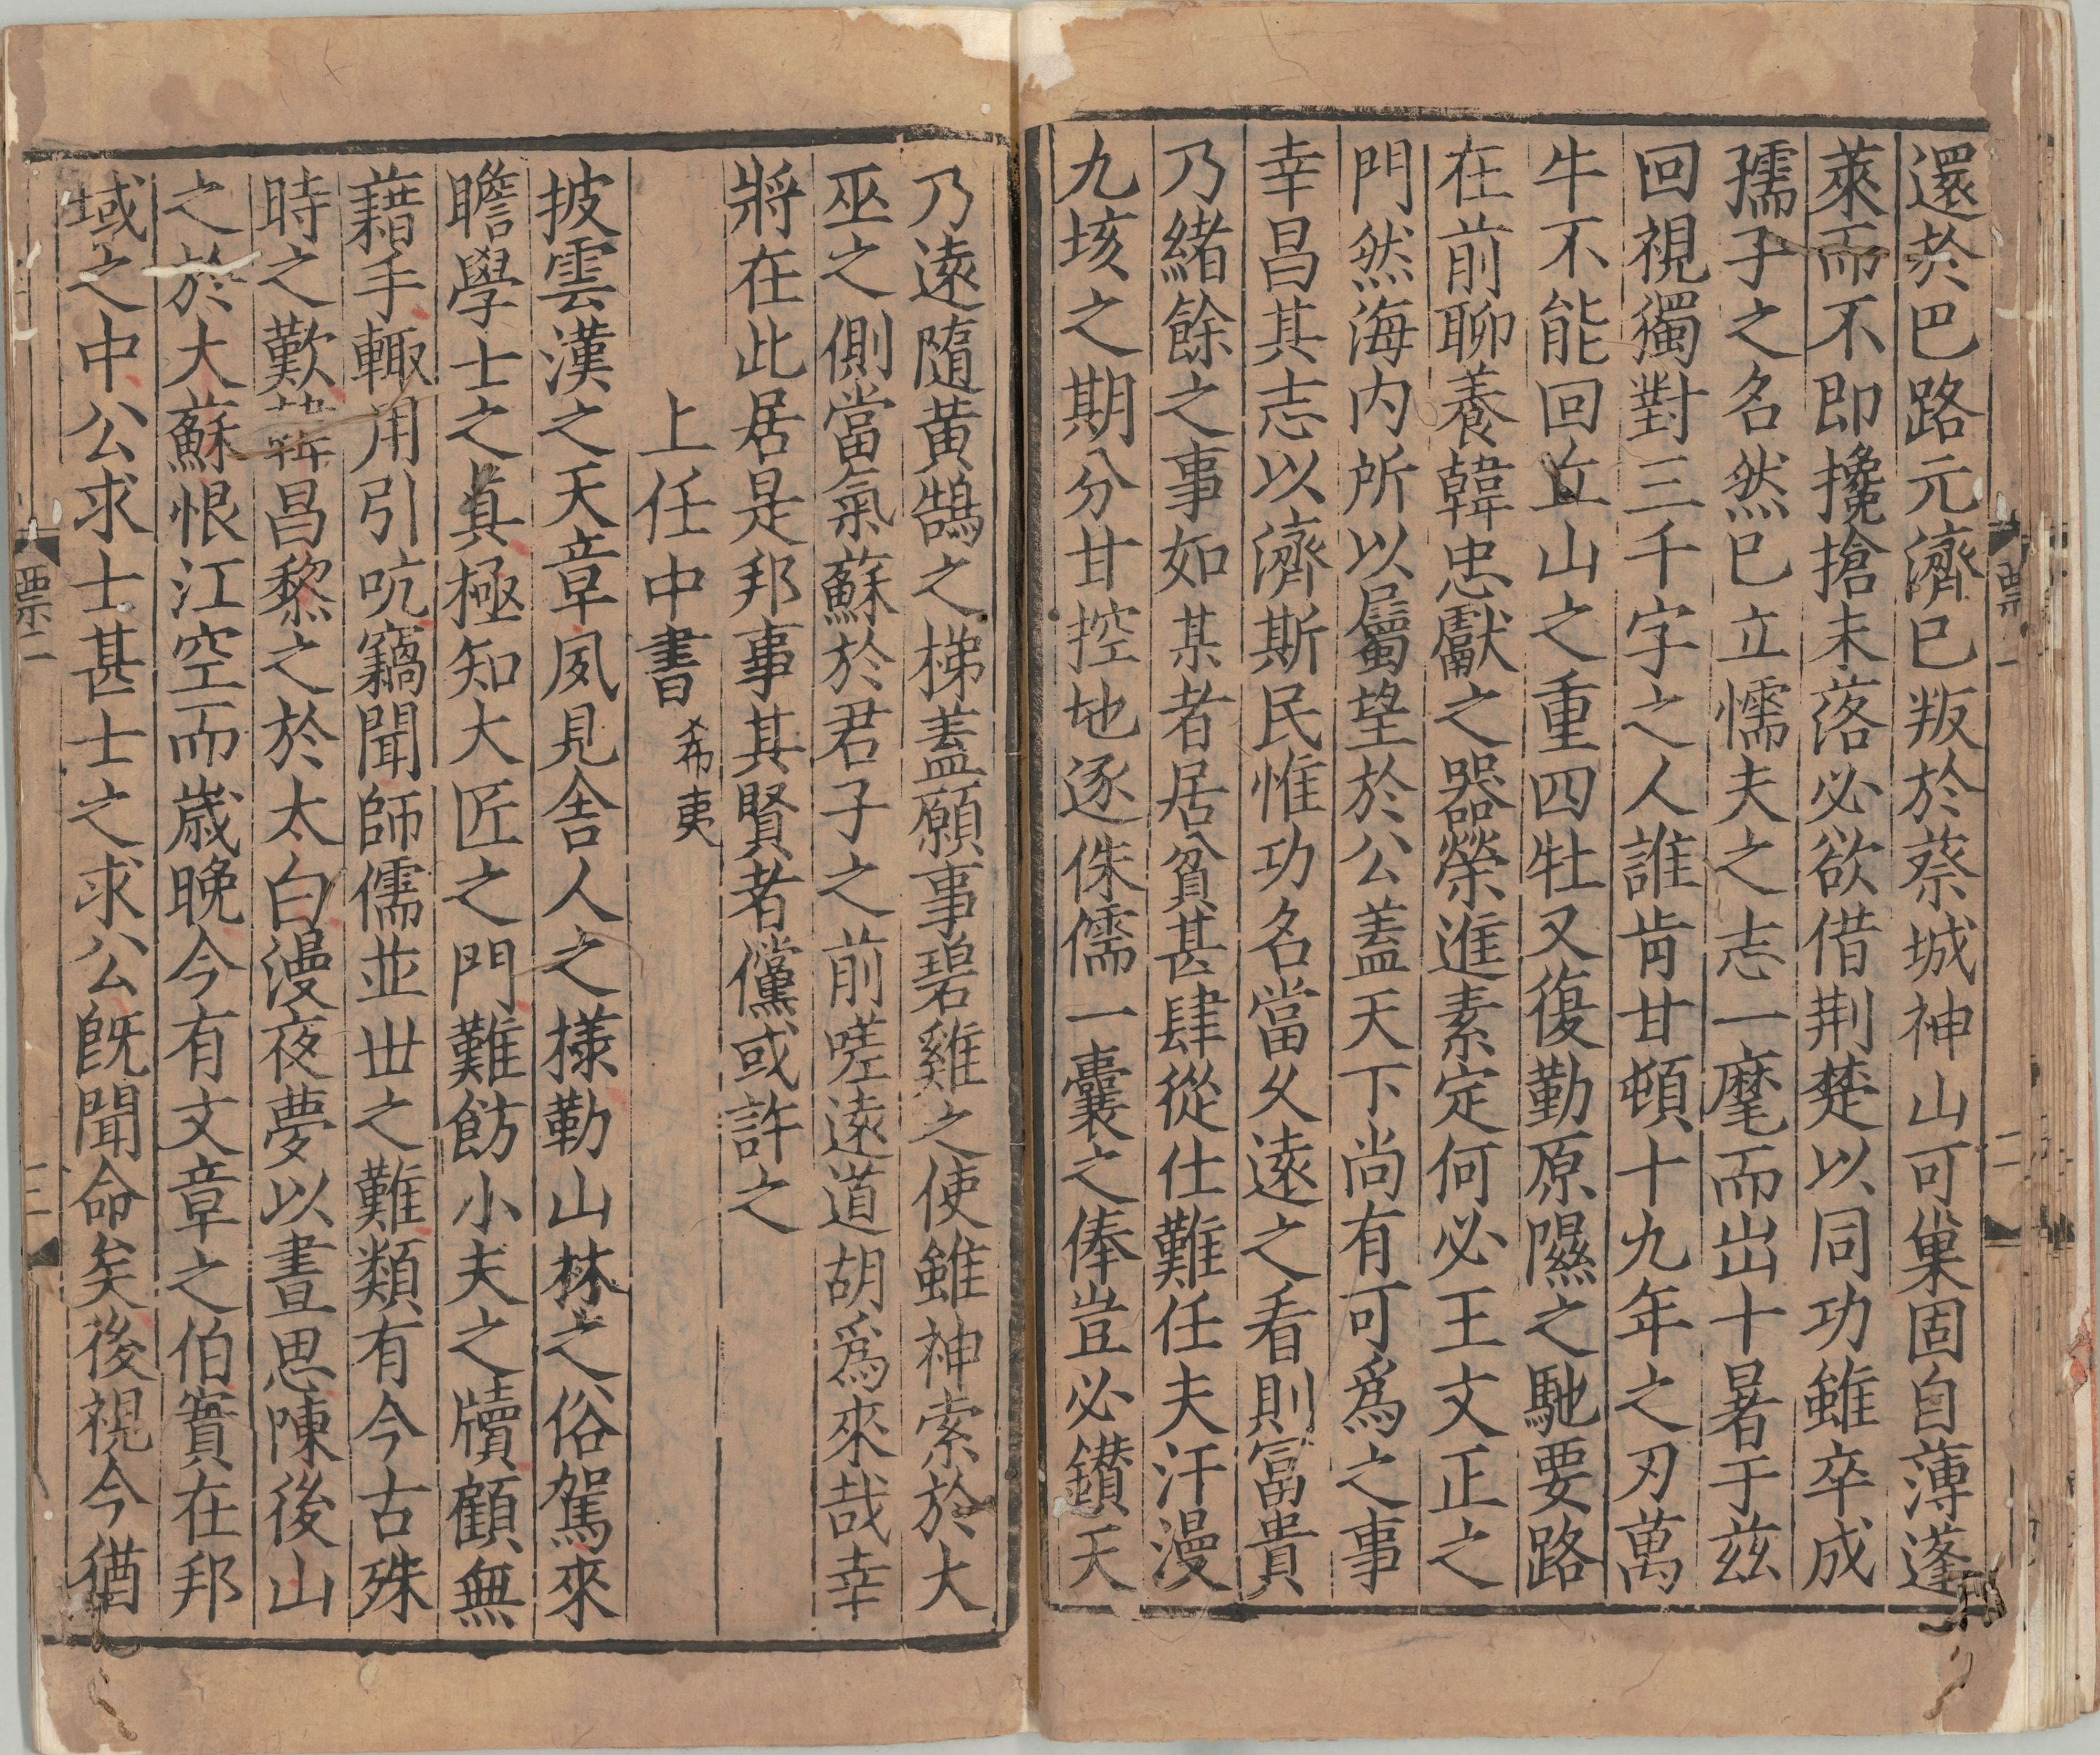 還於巴路元濟已叛於蔡城神山可巢固自薄蓬
萊而不即攙搶未落必欲借荆楚以同功雖卒成
孺子之名然已立懦夫之志一麾而出十暑于兹
回視獨對三千字之人誰肯甘頓十九年之刃萬
牛不能回丘山之重四牡又復勤原隰之馳要路
在前聊養韓忠獻之器榮進素定何必王文正之
門然海内所以屬望於公蓋天下尚有可爲之事
幸昌其志以濟斯民惟功名當久遠之看則冨貴
乃緒餘之事如某者居貧甚肆從仕難任夫汗漫
九垓之期分甘控地逐侏儒一囊之俸豈必鑽天
票一
二
乃遠隨黄鵠之梯蓋願事碧雞之使雖神索於大
巫之側當氣蘇於君子之前嗟遠道胡爲來哉幸
將在此居是邦事其賢者儻或許之
上任中書 希夷
披雲漢之天章夙見舍人之樣勒山林之俗駕來
瞻學士之真極知大匠之門難飭小夫之牘顧無
藉手輙用引吭竊聞師儒並丗之難類有今古殊
時之歎韓昌黎之於太白漫夜夢以晝思陳後山
之於大蘇恨江空而歲晚今有文章之伯實在邦
域之中公求士甚士之求公旣聞命矣後視今猶
票二
二